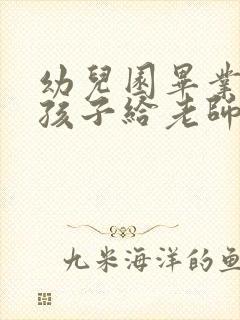 幼兒園畢業
孩子給老師
九米海洋的魚